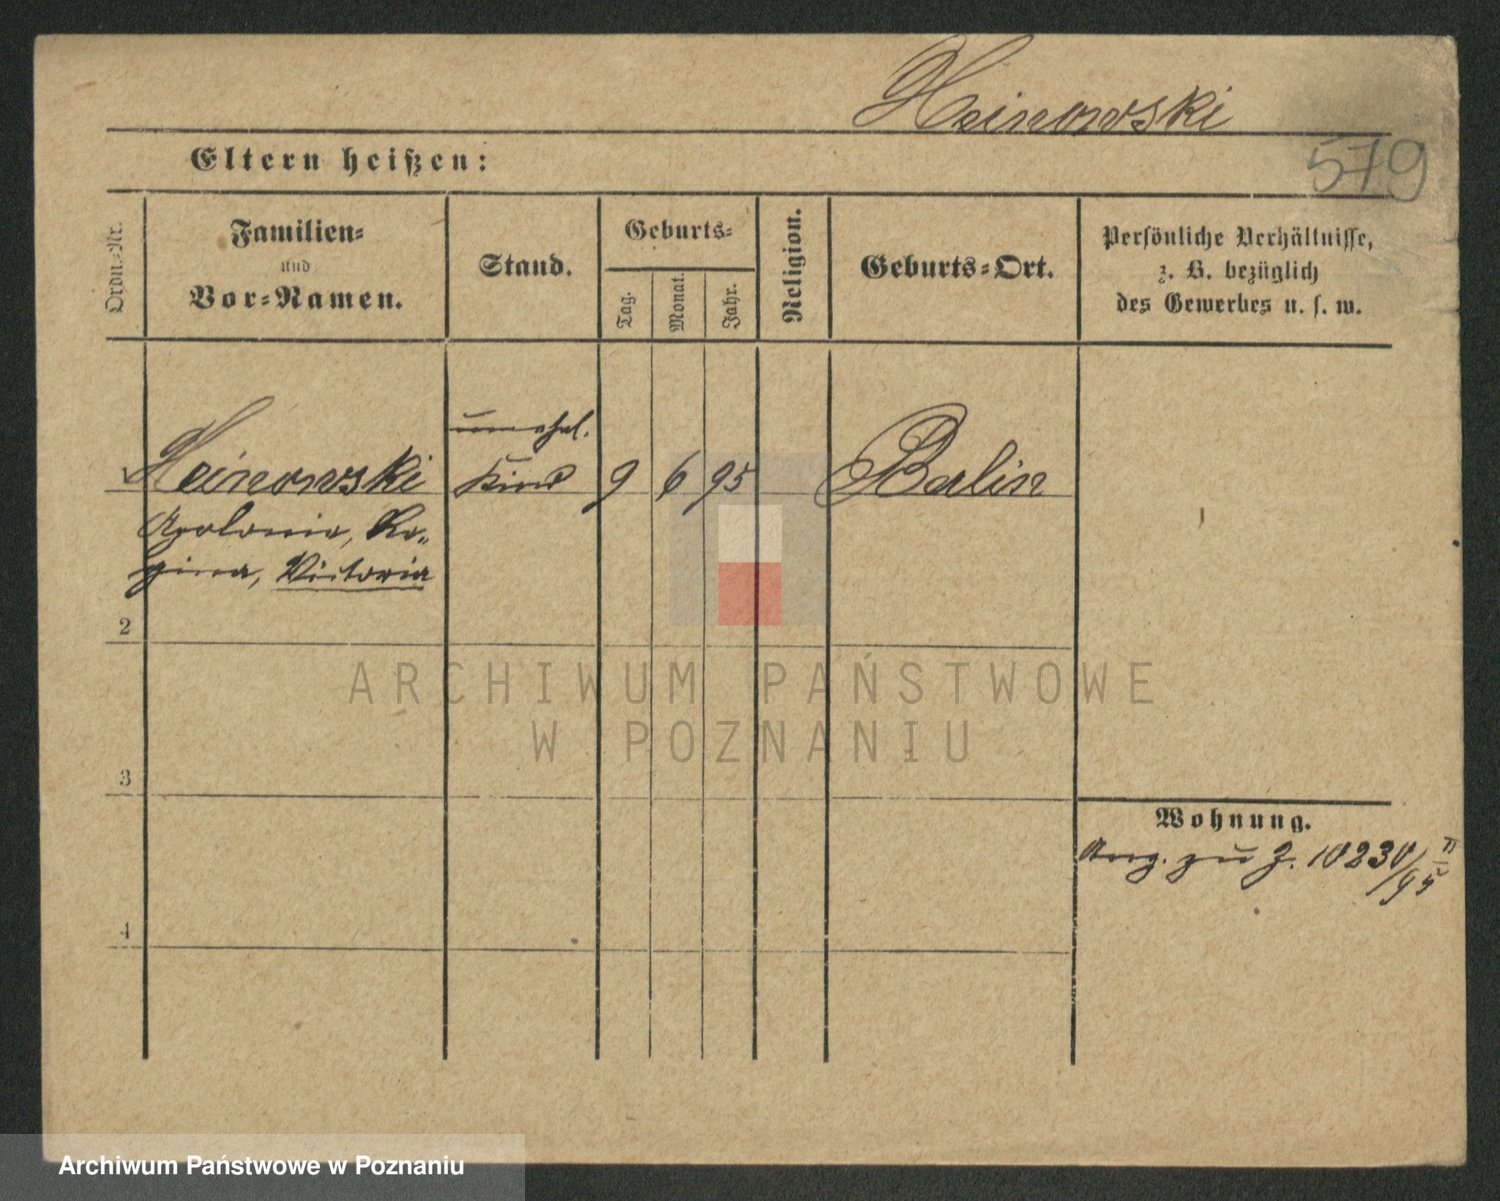 Heinowski
579
Eltern heißen:
Ordn.-Nr.
Familien-
und
Vor-Namen.
Stand.
Geburts-
Tag.
Monat.
Jahr.
Religion.
Geburts-Ort.
Persönliche Verhältnisse,
z. B. bezüglich
des Gewerbes u. s. w.
unehel.
1 Heinowski Kind 9 6 95 Berlin
Apolonia, Re-
gina, Victoria
2
3
4
Wohnung.
Ang. zu J. 10230/II 95
ARCHIWUM PAŃSTWOWE
W POZNANIU
Archiwum Państwowe w Poznaniu